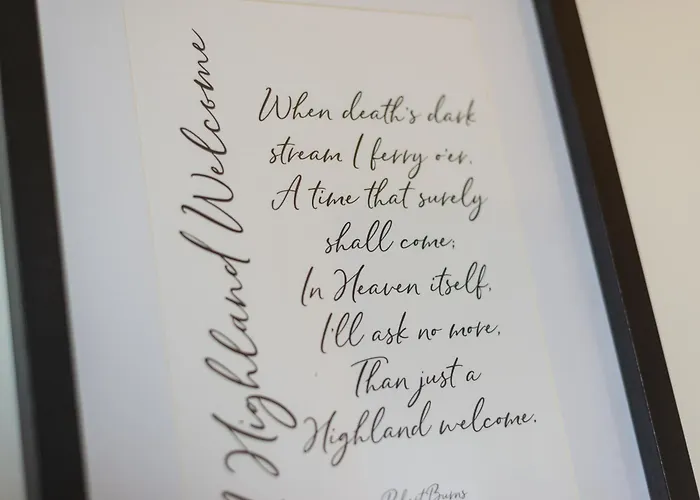 Highland Welcome
When death's dark
stream I ferry o'er,
A time that surely
shall come;
In Heaven itself,
I'll ask no more,
Than just a
Highland welcome.
Robert Burns